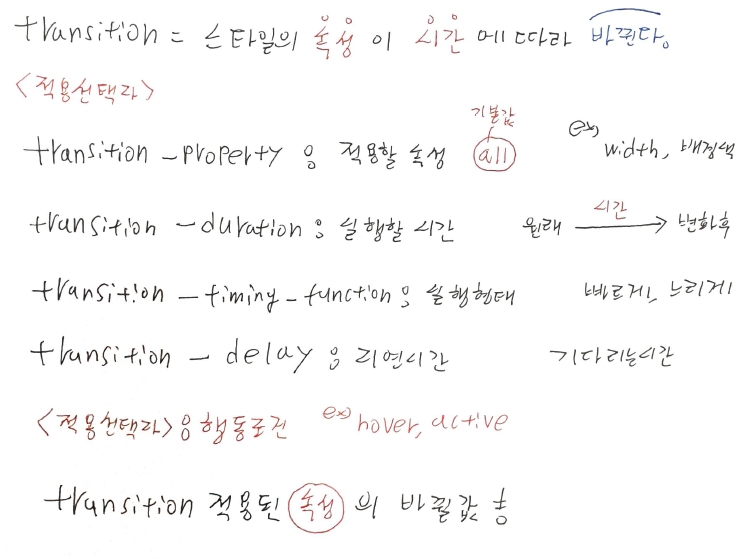 transition = 스타일의 속성이 시간에 따라 바뀐다.
<적용선택자>
기본값
transition-property : 적용할 속성 all ex) width, 배경색
transition-duration : 실행할 시간 원래 시간 → 변화후
transition-timing-function : 실행형태 빠르게, 느리게
transition-delay : 지연시간 기다리는시간
<적용선택자>:행동조건 ex) hover, active
transition 적용된 속성의 바뀔값 ;